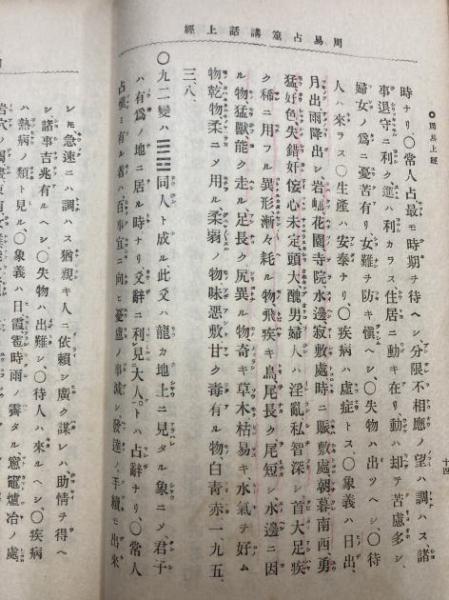 周易占筮講話上經
◎周易上經
十四
時ナリ、〇常人占最モ時期チ待ヘシ分限不相應ノ望ハ調ハス諸
事退守ニ利ク進ハ利カラス、住居ニ動キ在リ、動ハ却テ苦慮多シ、
婦女ノ爲ニ憂苦有リ女難チ防キ愼ヘシ、〇失物ハ出ツヘシ、〇待
人ハ來ラス、〇生產ハ安泰ナリ、〇疾病ハ虛症トス、〇象義ハ日出、
月出雨降出シ岩崛花園寺院水邊寂敷處時ニ賑敷處朝暮南西勇
猛好色失錯奸侫心未定頭大醜男婦人ハ淫亂私智深シ首大足疾
ク稀ニ用フル異形漸々耗ル物飛疾キ鳥、尾長ク尾短シ水邊ニ因
ル物猛獸能ク走ル足長ク尻異ル物奇キ草木枯易キ水氣チ好ム
物、乾物柔ニノ用ル柔弱ノ物味惡敷甘ク毒有ル物白青赤一九五、
三、八、
〇九二變ハ䷌同人ト成ル此爻ハ龍カ地上ニ見タル象ニノ君子
ハ有爲ノ地ニ居ル時ナリ爻辭ニ利見大人、トハ占辭ナリ、〇常人
占愼ミ有ル者ハ百事宜ニ向ヒ憂慮ノ事減シ發達ノ手續モ出來
シ𪜈急速ニハ調ハス猶親キ人ニ依賴シ廣ク謀レハ助情チ得ヘ
シ諸事吉兆有ルヘシ、〇失物ハ出難シ、〇待人ハ來ルヘシ、〇疾病
ハ熱病ノ類ト見ル、〇象義ハ日霞雹時雨ノ霽タル竈電爐冶ノ處